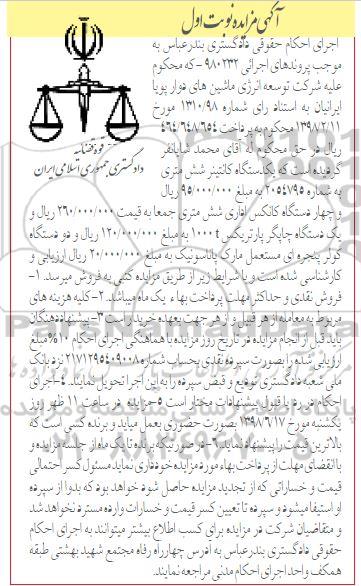 آگهی مزایده نوبت اول
اجرای احکام حقوقی دادگستری بندرعباس به
موجب پروندهای اجرائی ۹۸۰۲۳۲-که محکوم
علیه شرکت توسعه انرژی ماشین های دوار پویا
ایرانیان به استناد رای شماره ۱۳۱۰/۹۸ مورخ
۱۳۹۸/۲/۱۱ محکوم به پرداخت ۴۶۴/۶۴۸/۶۵۴
ریال در حق محکوم له آقای محمد شایانفر
گردیده است که یکدستگاه کانتینر شش متری
به شماره ۲۰۵۴۷۹۵ به مبلغ ۹۵/۰۰۰/۰۰۰ ریال
قوه قضائیه
دادگستری جمهوری اسلامی ایران
و چهار دستگاه کانکس اداری شش متری جمعا به قیمت ۲۶۰/۰۰۰/۰۰۰ ریال و
یک دستگاه چاپگر پارتریکس t ۱۰۰۰ به مبلغ ۱۲۰/۰۰۰/۰۰۰ ریال و دو دستگاه
کولر پنجره ای مستعمل مارک پاناسونیک به مبلغ ۲۰/۰۰۰/۰۰۰ ریال ارزیابی و
کارشناسی شده است و با شرایط زیر از طریق مزایده کتبی به فروش میرسد. ۱-
فروش نقدی و حداکثر مهلت پرداخت بهاء یک ماه میباشد. ۲-کلیه هزینه های
مربوط به معامله از هر قبیل و از هر جهت بعهده خریدار است ۳-پیشنهاددهندگان
باید قبل از انجام مزایده در تاریخ روز مزایده با هماهنگی اجرای احکام ۱۰% مبلغ
ارزیابی شده را بصورت سپرده نقدی بحساب شماره ۲۱۷۱۲۹۵۴۰۹۰۰۸ نزد بانک
ملی شعبه دادگستری تودیع و قبض سپرده را به این اجرا تحویل نمایند. ۴-اجرای
احکام در رد یا قبول پیشنهادات مختار است ۵-مزایده در ساعت ۱۱ ظهر روز
یکشنبه مورخ ۱۳۹۸/۶/۱۷ بصورت حضوری بعمل میاید و برنده کسی است که
بالاترین قیمت را پیشنهاد نماید ۶-در صورتیکه برنده تا یک ماه از جلسه مزایده و
با انقضای مهلت از پرداخت بهاء مورد مزایده خودداری نماید مسئول کسر احتمالی
قیمت و خساراتی که از تجدید مزایده حاصل شود خواهد بود که بدوا از سپرده
او استیفا میشود و سپرده تا تعیین کسر قیمت و خسارات وارده مسترد نخواهد شد
و متقاضیان شرکت در مزایده برای کسب اطلاع بیشتر میتوانند به اجرای احکام
حقوقی دادگستری بندرعباس به ادرس چهارراه رفاه مجتمع شهید بهشتی طبقه
همکف واحد اجرای احکام مدنی مراجعه نمایند.